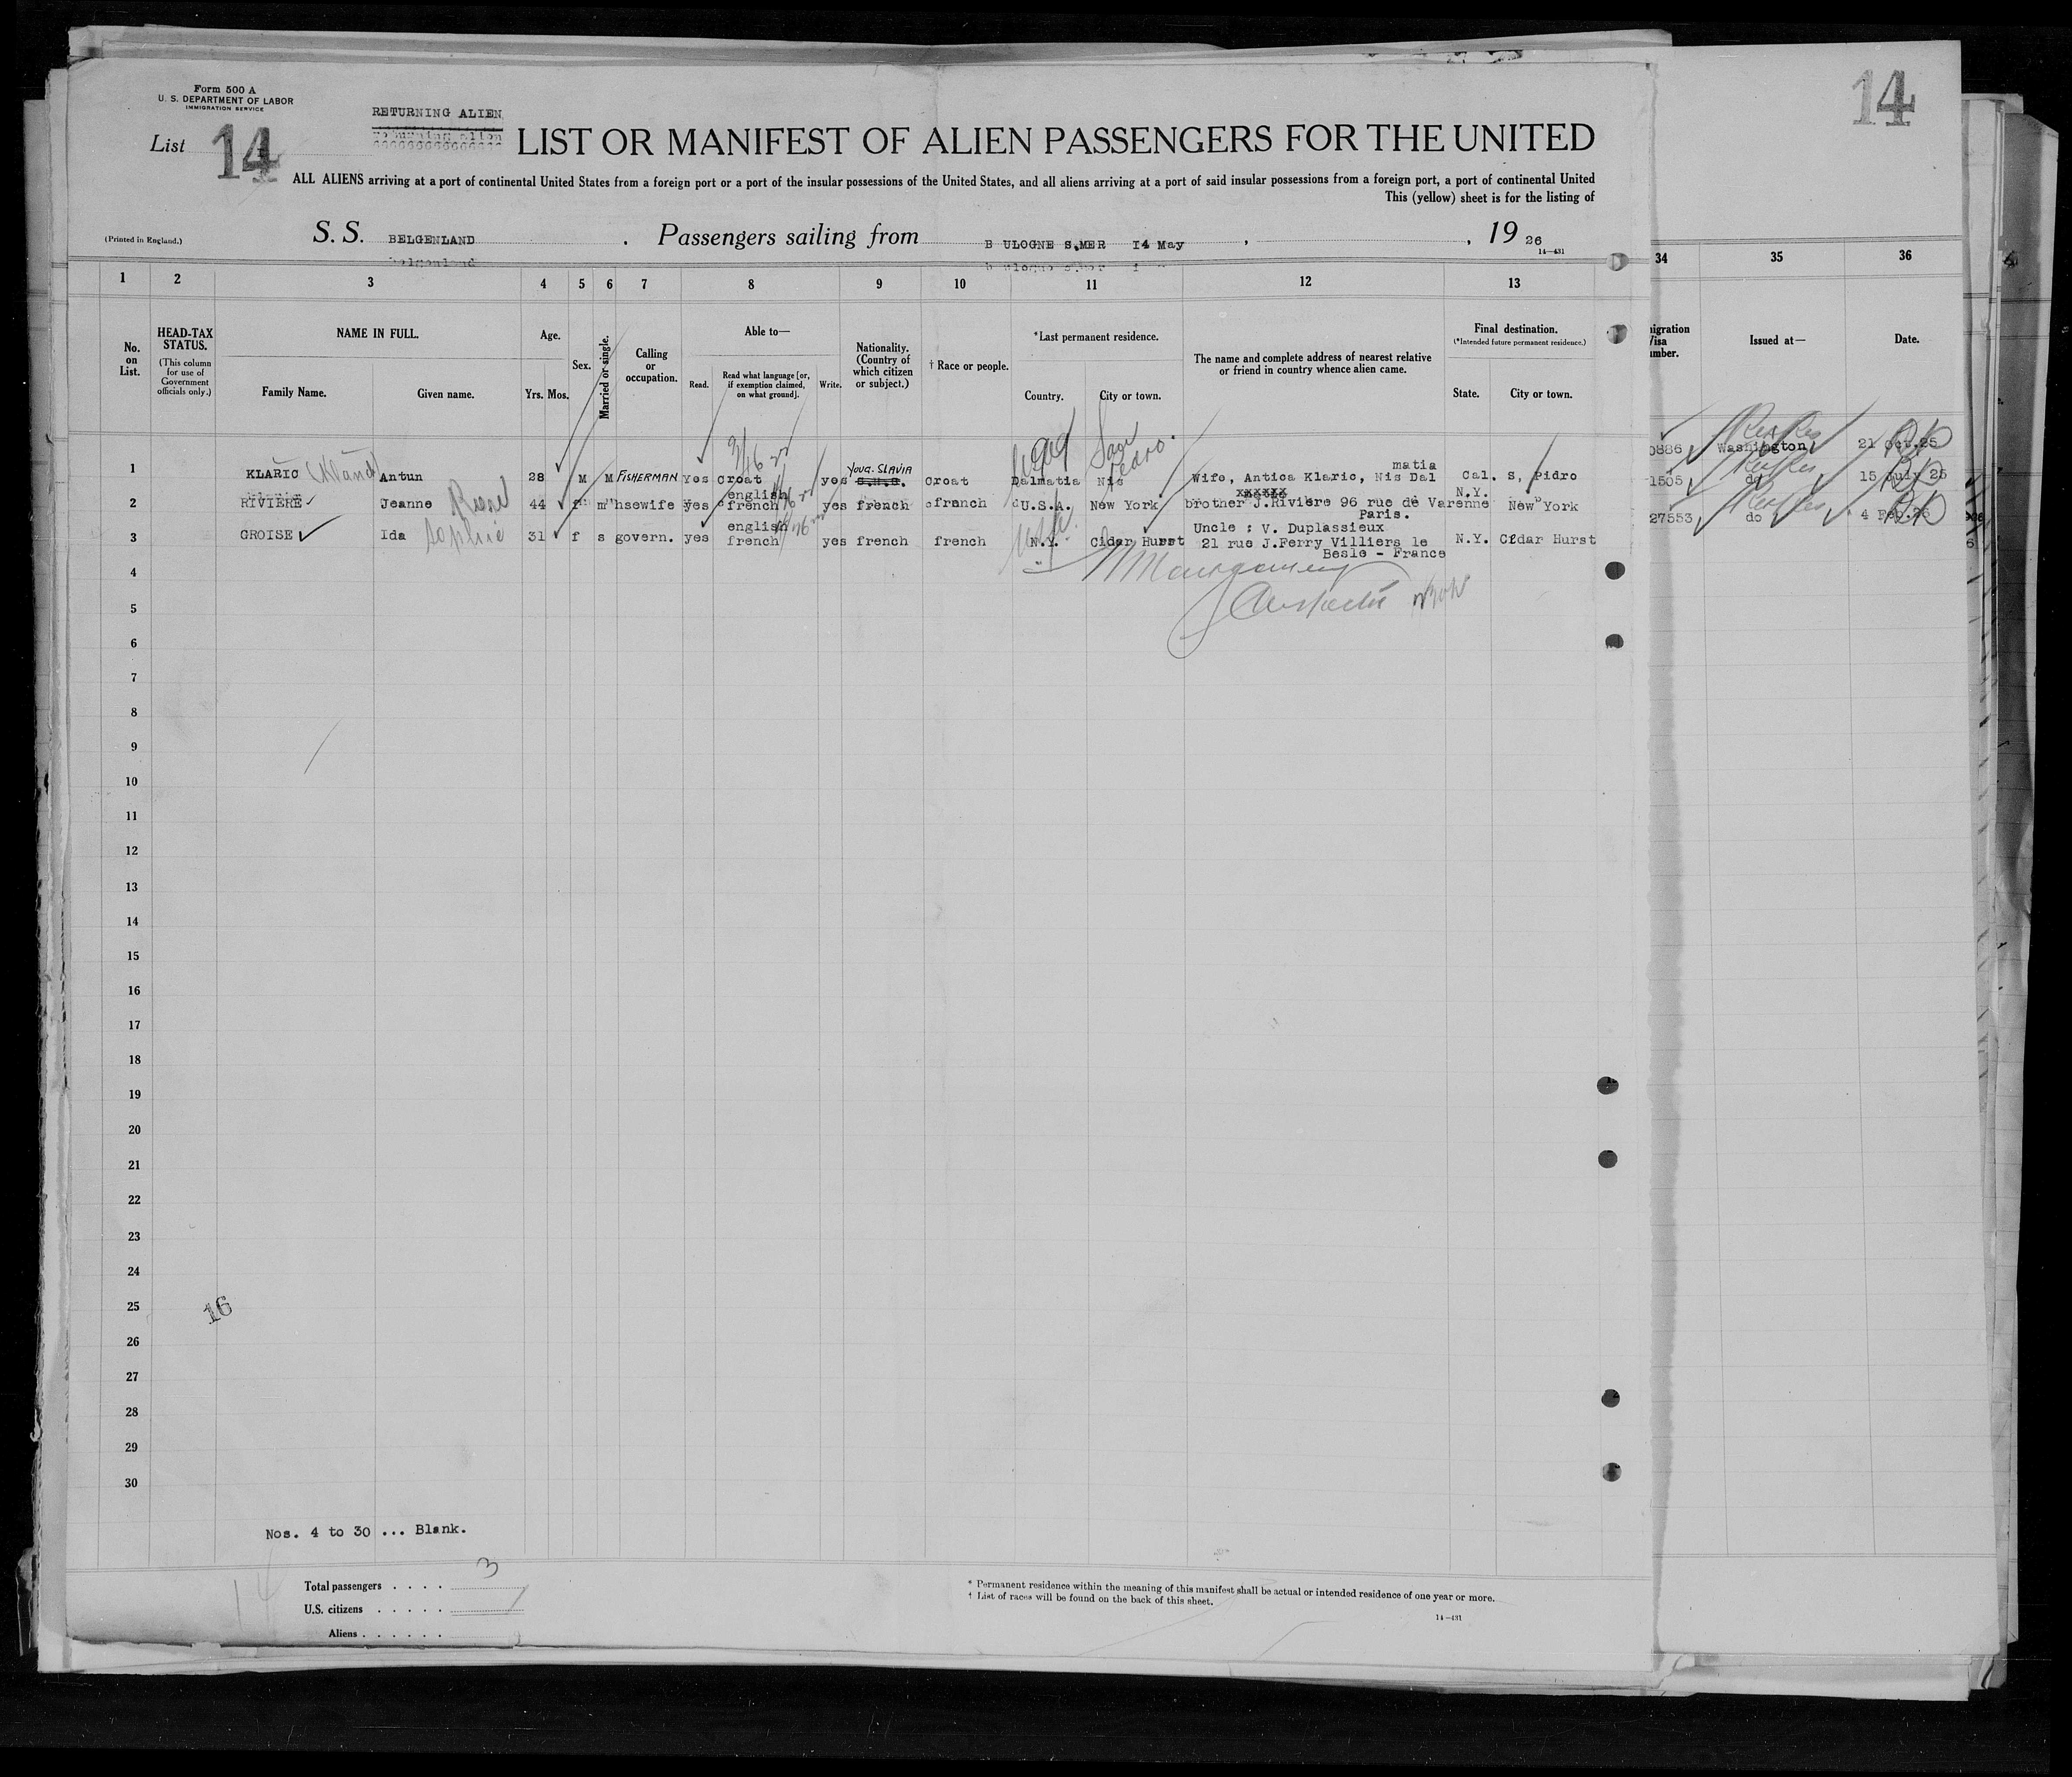 Form 500 A
U. S. DEPARTMENT OF LABOR
IMMIGRATION SERVICE
List 14
RETURNING ALIEN
LIST OR MANIFEST OF ALIEN PASSENGERS FOR THE UNITED
14
ALL ALIENS arriving at a port of continental United States from a foreign port or a port of the insular possessions of the United States, and all aliens arriving at a port of said insular possessions from a foreign port, a port of continental United
This (yellow) sheet is for the listing of
(Printed in England.)
S. S. BELGENLAND . Passengers sailing from B ULOGNE S,MER I4 May , , 19 26
14—431
1 2 3 4 5 6 7 8 9 10 11 12 13 34 35 36
No. on List.
HEAD-TAX STATUS.
(This column for use of Government officials only.)
NAME IN FULL.
Family Name. Given name.
Age.
Yrs. Mos.
Sex.
Married or single.
Calling or occupation.
Able to—
Read. Read what language [or, if exemption claimed, on what ground]. Write.
Nationality. (Country of which citizen or subject.)
† Race or people.
*Last permanent residence.
Country. City or town.
The name and complete address of nearest relative or friend in country whence alien came.
Final destination.
(*Intended future permanent residence.)
State. City or town.
Issued at—
Date.
1 KLARIC Antun 28 M M FISHERMAN Yes Croat yes YOUG. SLAVIA Croat Dalmatia Nis Wife, Antica Klaric, Nis Dal matia Cal. S, Pidro 0886 Washington 21 Oct.25
San Pedro
2 RIVIERE Jeanne 44 f m hsewife yes english french yes french franch U.S.A. New York brother J.Riviere 96 rue de Varenne Paris. N.Y. New York 1505 do 15 July 25
3 GROISE Ida Sophie 31 f s govern. yes english french yes french french N.Y. Cidar Hurst Uncle : V. Duplassieux
21 rue J.Ferry Villiers le
Besle - France N.Y. Cedar Hurst 27553 do 4 Feb.26
4
5
6
7
8
9
10
11
12
13
14
15
16
17
18
19
20
21
22
23
24
25
16
26
27
28
29
30
Nos. 4 to 30 ... Blank.
Total passengers . . . . 3
U.S. citizens . . . . .
Aliens . . . . . .
* Permanent residence within the meaning of this manifest shall be actual or intended residence of one year or more.
† List of races will be found on the back of this sheet.
14—431